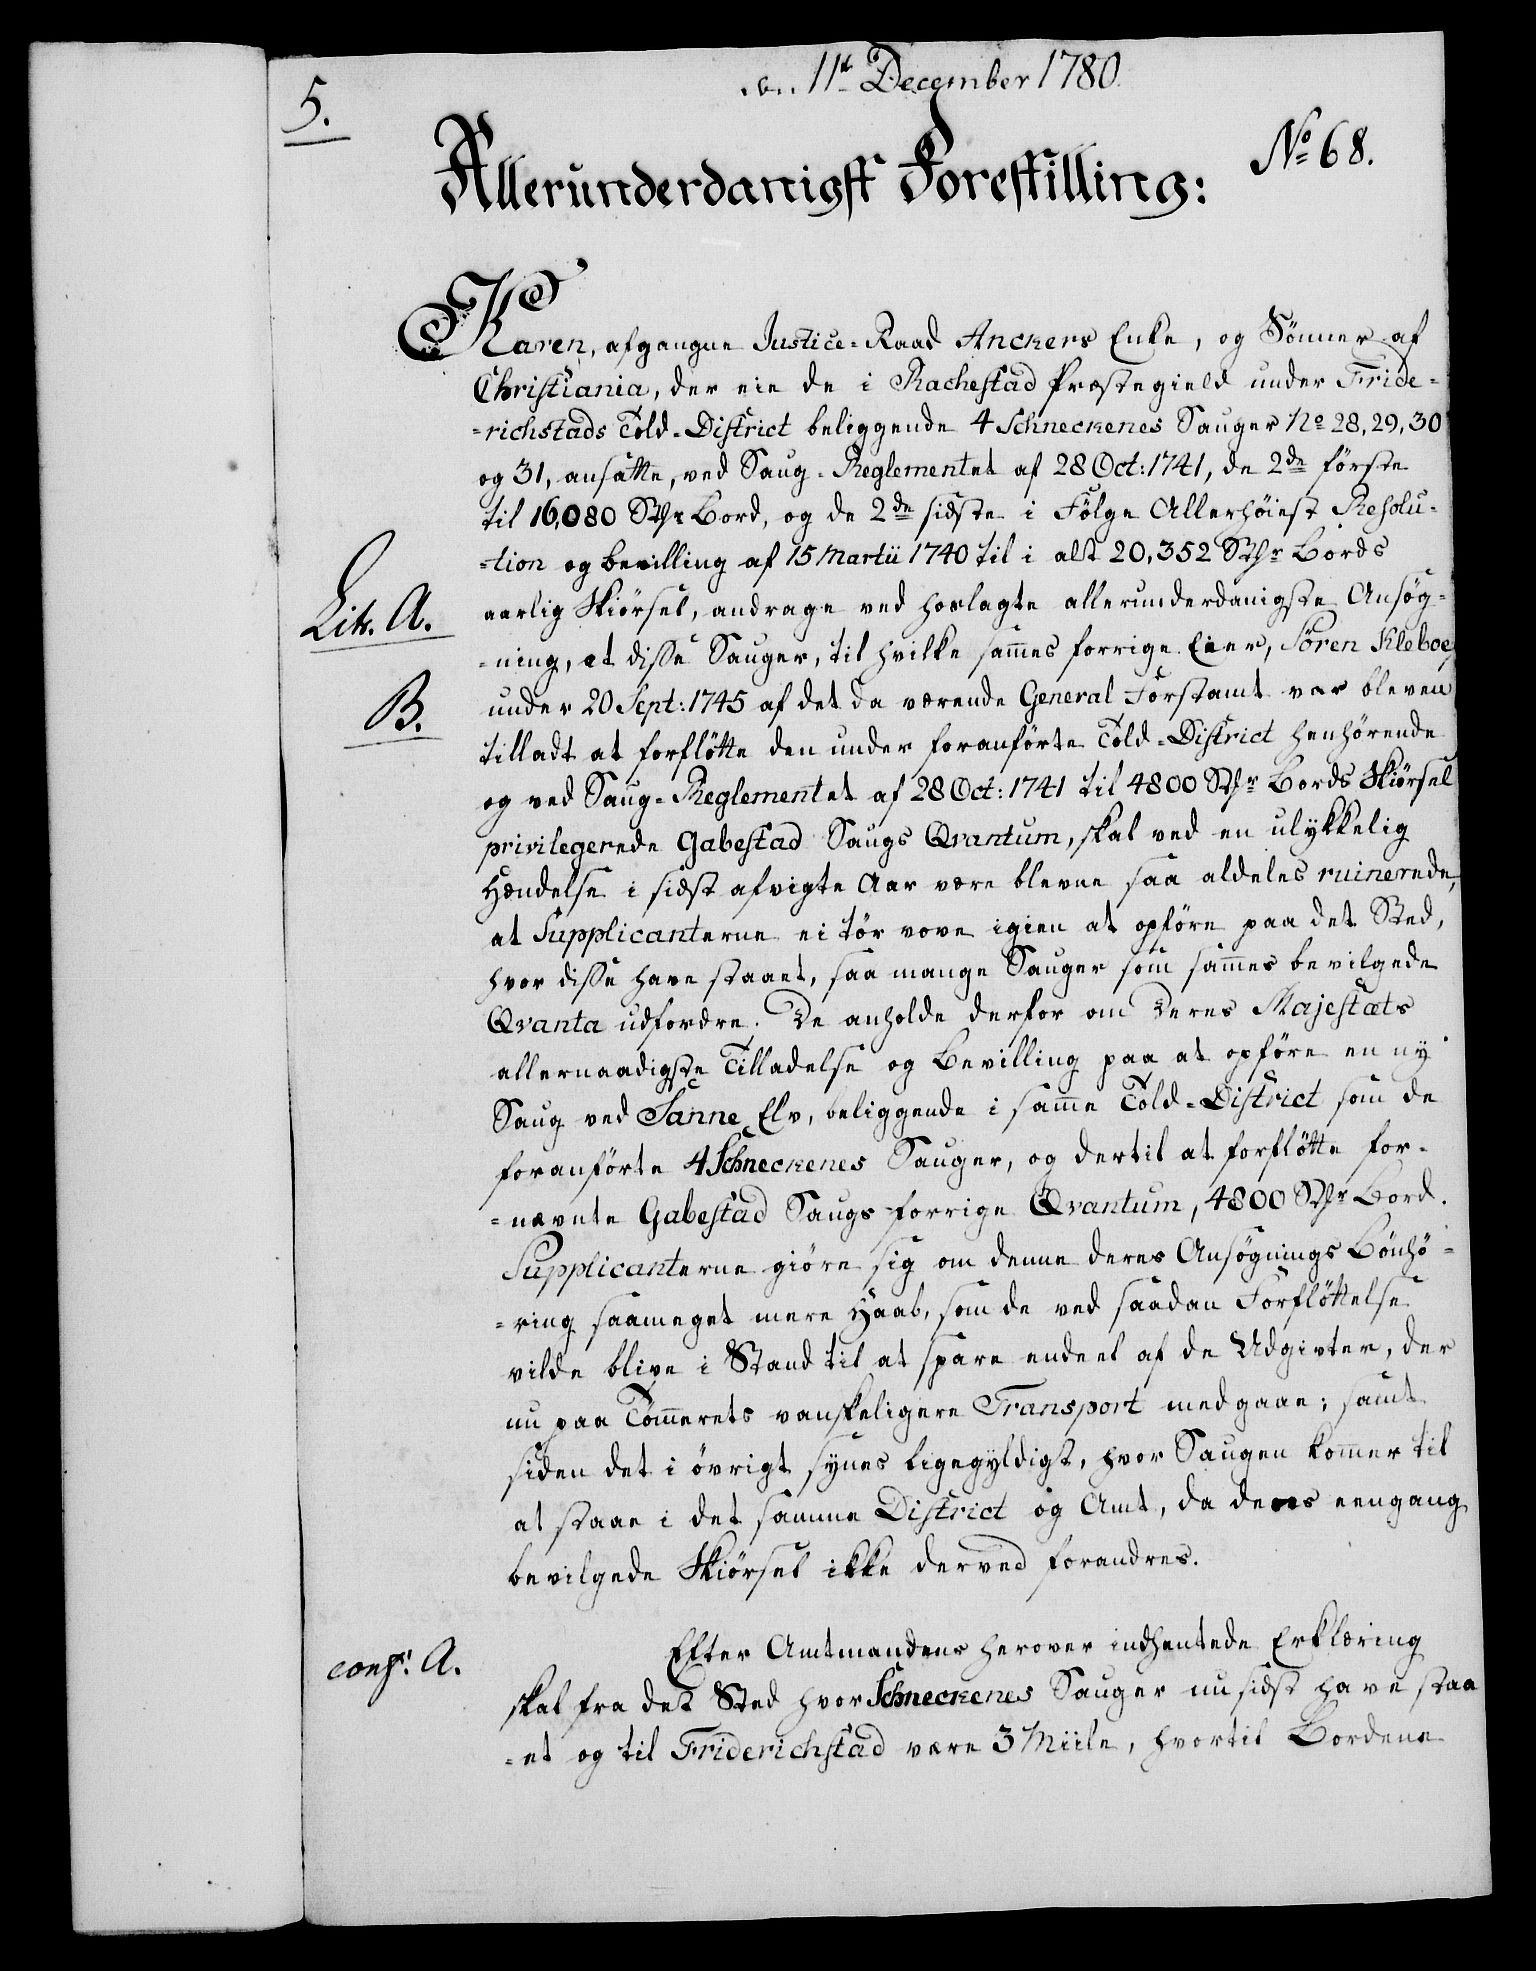 11t December 1780.
5.
No 68.
Allerunderdanigst Forestilling:
Karen, afgangne Justice-Raad Anckers Enke, og Sønner af
Christiania, der eie de i Rachestad Præstegield under Fride-
-richstads Told-District beliggende 4 Schneckenes Sauger No 28, 29, 30
og 31, ansatte, ved Saug-Reglementet af 28 Oct: 1741, de 2de første
til 16,080 Stkr Bord, og de 2de sidste i Følge Allerhøiest Resolu-
-tion og bevilling af 15 Martii 1740 til i alt 20,352 Stkr Bords
aarlig Skiørsel, andrage ved hoslagte allerunderdanigste Ansøg-
Litr. A.
-ning, at disse Sauger, til hvilke sam̅es forrige Eier, Søren Kleboe,
under 20 Sept: 1745 af det da værende General Forstamt var bleven
B.
tilladt at forfløtte den under foranførte Told-District henhørende
og ved Saug-Reglementet af 28 Oct: 1741 til 4800 Stkr Bords Skiørsel
privilegerede Gabestad Saugs Qvantum, skal ved en ulykkelig
Hændelse i sidst afvigte Aar være blevne saa aldeles ruinerede,
at Supplicanterne ei tør vove igien at opføre paa det Sted,
hvor disse have staaet, saa mange Sauger som sam̅es bevilgede
Qvanta udfordre. De anholde derfor om Deres Majestæts
allernaadigste Tilladelse og Bevilling paa at opføre en ny
Saug ved Sanne Elv, beliggende i sam̅e Told-District som de
foranførte 4 Schneckenes Sauger, og dertil at forfløtte for-
-nævnte Gabestad Saugs forrige Qvantum, 4800 Stkr Bord.
Supplicanterne giøre sig om denne deres Ansøgnings Bønhø-
-ring saameget mere Haab, som de ved saadan Forfløttelse
vilde blive i Stand til at spare endeel af de Udgivter, der
nu paa Tøm̅erets vanskeligere Transport medgaae; samt
siden det i øvrigt synes ligegyldigt, hvor Saugen kom̅er til
at staae i det samme District og Amt, da dens eengang
bevilgede Skiørsel ikke derved forandres.
Efter Amtmandens herover indhentede Erklæring
conf: A.
skal fra det Sted hvor Schneckenes Sauger nu sidst have staa
-et og til Friderichstad være 3 Miile, hvortil Bordene